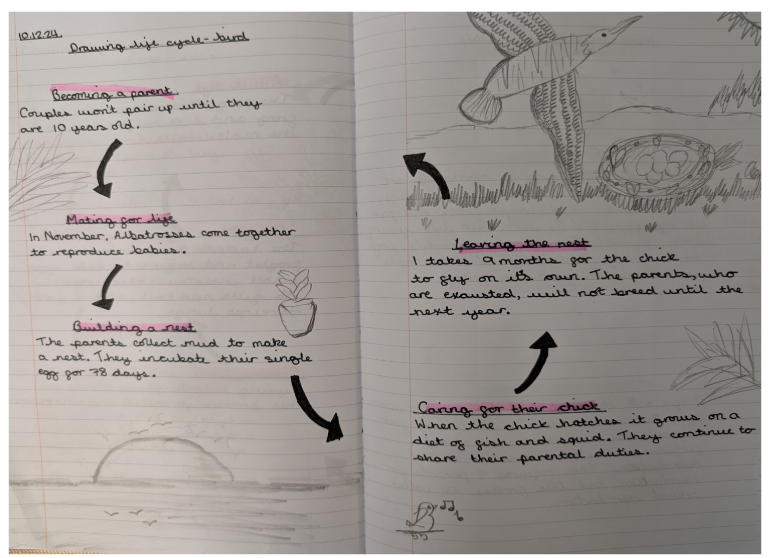 10.12.24.
Drawing life cycle - bird
Becoming a parent.
Couples won't pair up until they
are 10 years old.
Mating for life
In November, Albatrosses come together
to reproduce babies.
Building a nest
The parents collect mud to make
a nest. They incubate their single
egg for 78 days.
Leaving the nest
I takes 9 months for the chick
to fly on it's own. The parents, who
are exausted, will not breed until the
next year.
Caring for their chick
When the chick hatches it grows on a
diet of fish and squid. They continue to
share their parental duties.